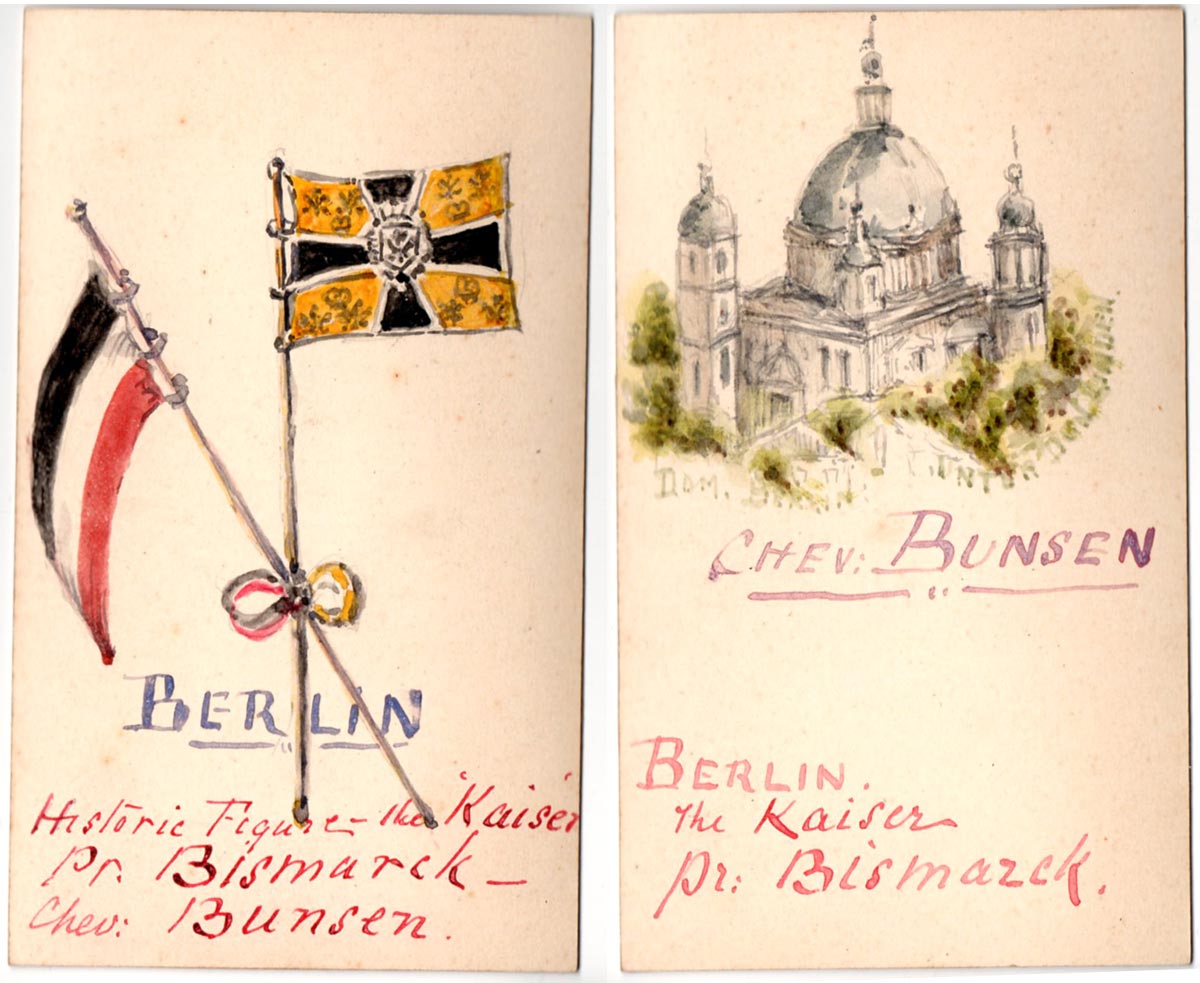 BERLIN
Historic Figure - the 'Kaiser'
Pr. Bismarck -
Chev: Bunsen.
DOM. UNTER DEN LINDEN
CHEV: BUNSEN
BERLIN.
The Kaiser
Pr: Bismarck.